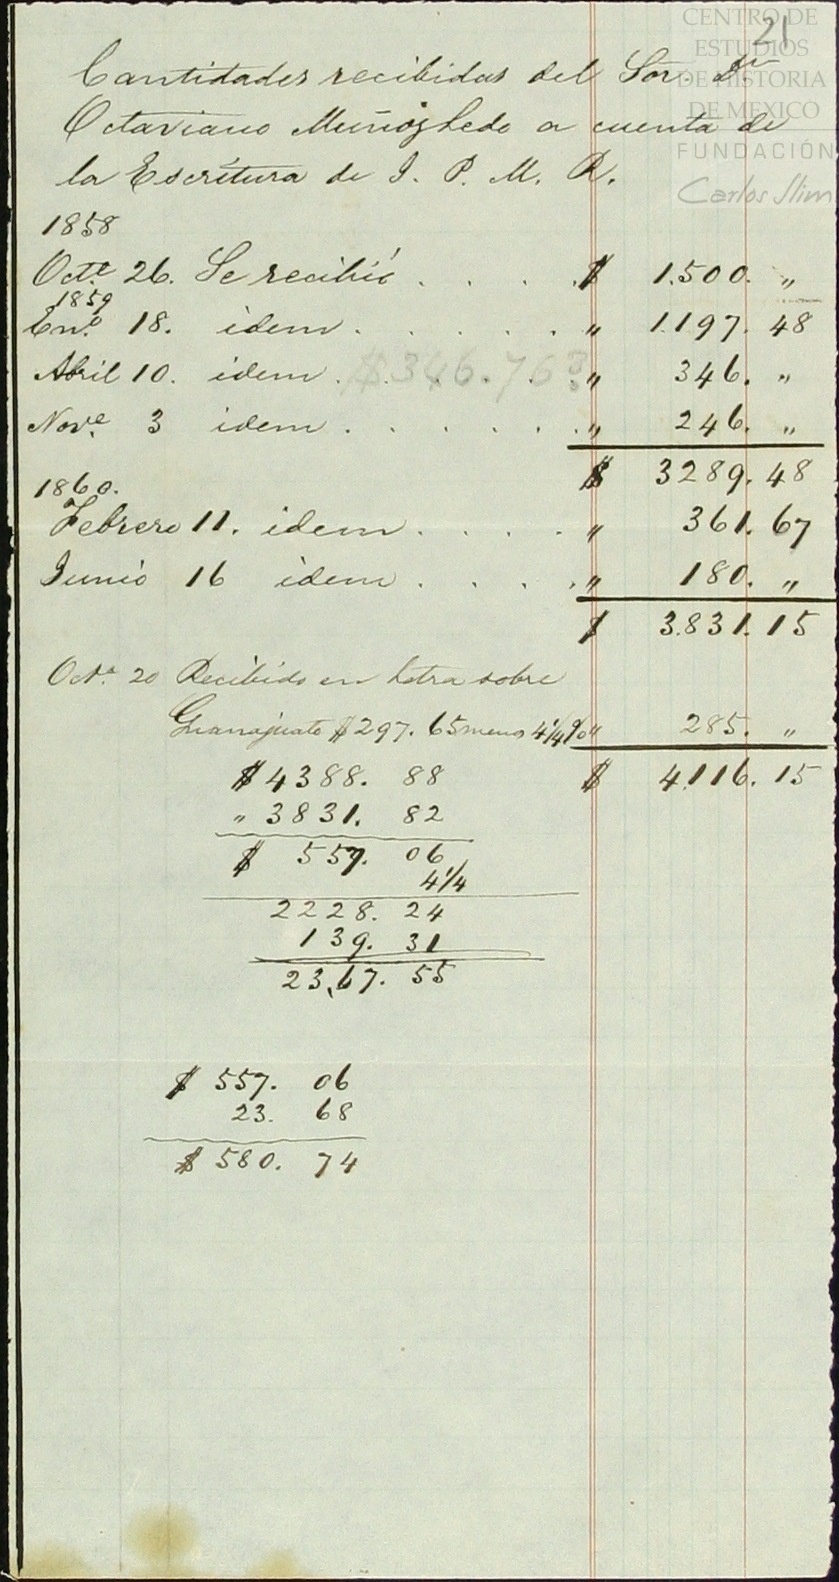 CENTRO DE
ESTUDIOS
DE HISTORIA
DE MEXICO
FUNDACIÓN
Carlos Slim
21
Cantidades recibidas del Sor. Dn
Octaviano Muñozledo a cuenta de
la Escritura de I. P. M. R.
1858
Octe. 26. Se recibió . . . . $ 1.500. „
1859
Eno. 18. idem . . . . . „ 1.197. 48
Abril 10. idem . . . . . „ 346. „
$346.76?
Nove. 3 idem . . . . . . „ 246. „
$ 3289. 48
1860.
Febrero 11. idem . . . . „ 361. 67
Junio 16 idem . . . . „ 180. „
$ 3.831. 15
Octe. 20 Recibido en letra sobre
Guanajuato $297. 65 menos 4¼% „ 285. „
$ 4.116. 15
$ 4388. 88
„ 3831. 82
$ 557. 06
4¼
2228. 24
139. 31
23,67. 55
$ 557. 06
23. 68
$ 580. 74